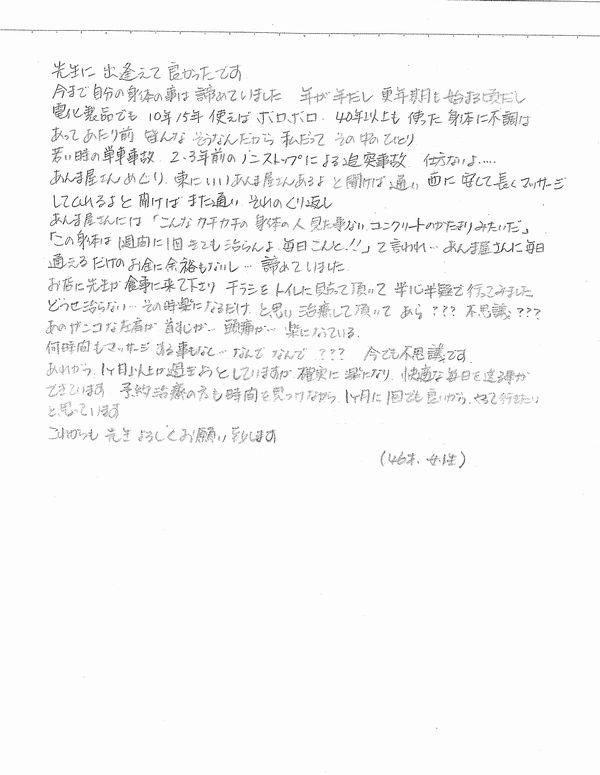 先生に 出逢えて 良かったです
今まで自分の身体の事は 諦めていました 年が年だし 更年期も始まる頃だし
電化製品でも 10年15年 使えば ボロボロ 40年以上も 使った 身体に不調は
あって あたり前 皆んな そうなんだから 私だって その中のひとり
若い時の単車事故 2-3年前のノンストップによる追突事故 仕方ないよ……
あんま屋さんめぐり 東にいいあんま屋さんあるよ と聞けば通い 西に 安くて長くマッサージ
してくれるよと 聞けば また通い それのくり返し
あんま屋さんには「こんなカチカチの身体の人 見た事ない コンクリートのかたまりみたいだ」
「この身体は 1週間に1回きても治らんよ 毎日こんと!!」て言われ… あんま屋さんに毎日
通えるだけのお金に余裕もないし… 諦めていました
お店に先生が食事に来て下さり チラシを トイレに貼って頂いて 半心半疑で行ってみました
どうせ治らない… その時楽になるだけ と思い 治療して頂いて あら ??? 不思議 ???
あのガンコな左肩が 首すじが… 頭痛が… 楽になっている
何時間もマッサージ する事もなく… なんで なんで ??? 今でも不思議です
あれから、1ヶ月以上が過ぎようとしていますが 確実に 楽になり 快適な毎日を送る事が
できています 予約治療の方も時間を見つけながら 1ヶ月に1回でも良いから、やって行きたい
と思っています
これからも 先生 よろしくお願い致します
(46才、女性)